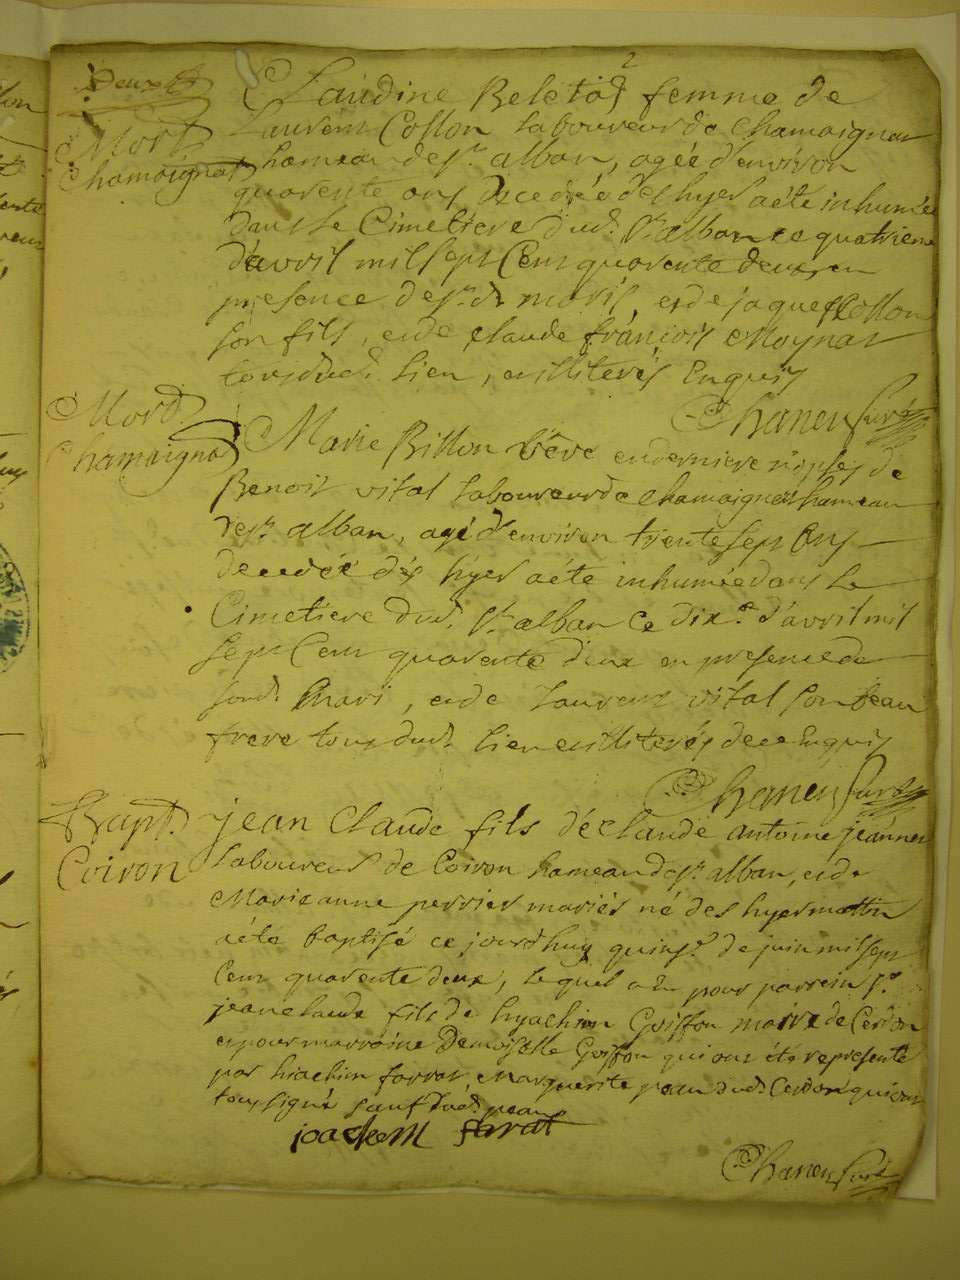 Deux
Mort
Chamaignat
Claudine Beletod femme de
Laurent Collon laboureur de Chamaignat
hameau de st alban, agée d'environ
quarente ans decedée des hyer a été inhumée
dans le Cimetiere dud. st alban ce quatrieme
d'avril mil sept Cent quarente deux en
presence de sd mari, et de jaque Collon
son fils, et de Claude françois Moynat
tous dud. lien, illiterés Enquis
Chaneu Curé
Mort
Chamaignat
Marie Billon vêve en derniere nopses de
Benoit vital laboureur de Chamaignat hameau
de st alban, agé d'environ trente sept ans
decedée dés hyer a été inhumée dans le
Cimetiere dud. st alban Ce dixe d'avril mil
sept Cent quarente deux en presence de
sond. mari, et de Laurent vital son beau
frere tous dud. lieu et illiterés de ce Enquis
Chaneu Curé
Bapt.
Coiron
jean Claude fils de Claude antoine jeannet
laboureur de Coiron hameau de st alban, et de
Marie anne perrier mariés né des hyer mattin
a été baptisé ce jourdhuy quinse de juin mil sept
Cent quarente deux, lequel a eu pour parrein sr
jean claude fils de hyachin Goiffon maire de Cerdon
et pour marraine Demoiselle Goiffon qui ont été representé
par hiachim farrat, Marguerite jean dud. Cerdon qui ont
tous signé sauf lad. jean
joachem farat
Chaneu Curé